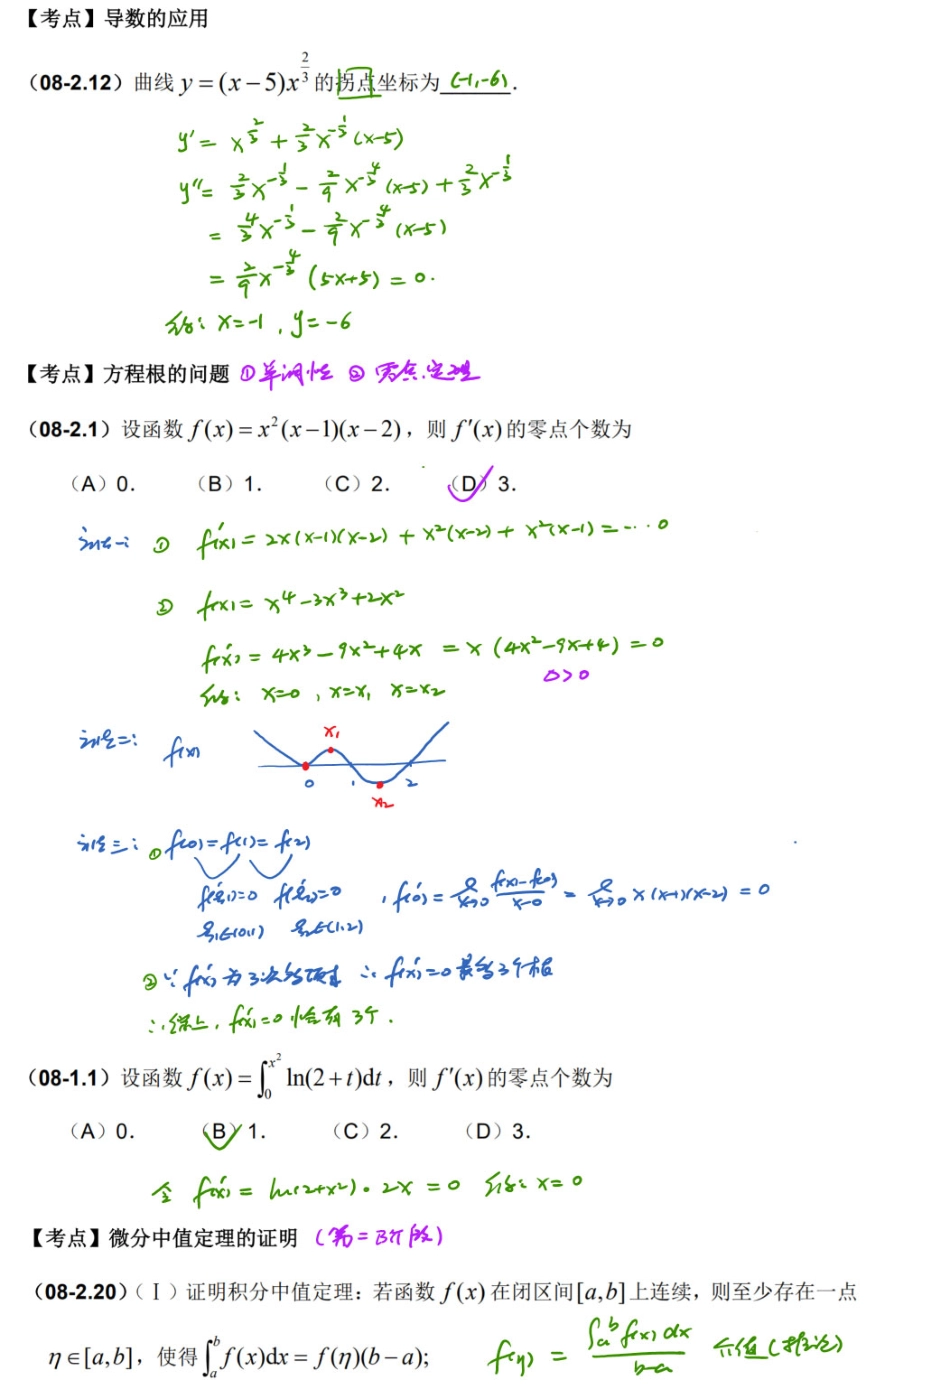 【考点】导数的应用
(08-2.12) 曲线 y = (x－5)x^{2/3} 的拐点坐标为 (-1,-6).
y' = x^{2/3} + 2/3 x^{-1/3} (x-5)
y'' = 2/3 x^{-1/3} - 2/9 x^{-4/3} (x-5) + 2/3 x^{-1/3}
= 4/3 x^{-1/3} - 2/9 x^{-4/3} (x-5)
= 2/9 x^{-4/3} (5x+5) = 0.
解得: x=-1, y=-6
【考点】方程根的问题 ①单调性 ②零点定理
(08-2.1) 设函数 f(x) = x²(x－1)(x－2)，则 f'(x) 的零点个数为
(A) 0. (B) 1. (C) 2. (D) 3.
法一 ① f'(x) = 2x(x-1)(x-2) + x²(x-2) + x²(x-1) = … 0
② f(x) = x⁴-3x³+2x²
f'(x) = 4x³-9x²+4x = x(4x²-9x+4) = 0
Δ>0
解得: x=0, x=x₁, x=x₂
法二: f(x)
x₁
0 1 2
x₂
法三: ① f(0)=f(1)=f(2)
f'(ξ₁)=0 f'(ξ₂)=0, f'(0) = lim_{x→0} (f(x)-f(0))/(x-0) = lim_{x→0} x(x-1)(x-2) = 0
ξ₁∈(0,1) ξ₂∈(1,2)
② ∵ f'(x) 为3次多项式 ∴ f'(x)=0 最多3个根
∴ 综上, f'(x)=0 恰有3个.
(08-1.1) 设函数 f(x) = ∫₀^{x²} ln(2+t)dt，则 f'(x) 的零点个数为
(A) 0. (B) 1. (C) 2. (D) 3.
令 f'(x) = ln(2+x²)·2x = 0 解得: x=0
【考点】微分中值定理的证明 (第二阶段)
(08-2.20)(Ⅰ) 证明积分中值定理：若函数 f(x) 在闭区间 [a,b] 上连续，则至少存在一点
η∈[a,b]，使得 ∫ₐᵇ f(x)dx = f(η)(b－a); f(η) = ∫ₐᵇ f(x)dx / (b-a) 介值(推论)